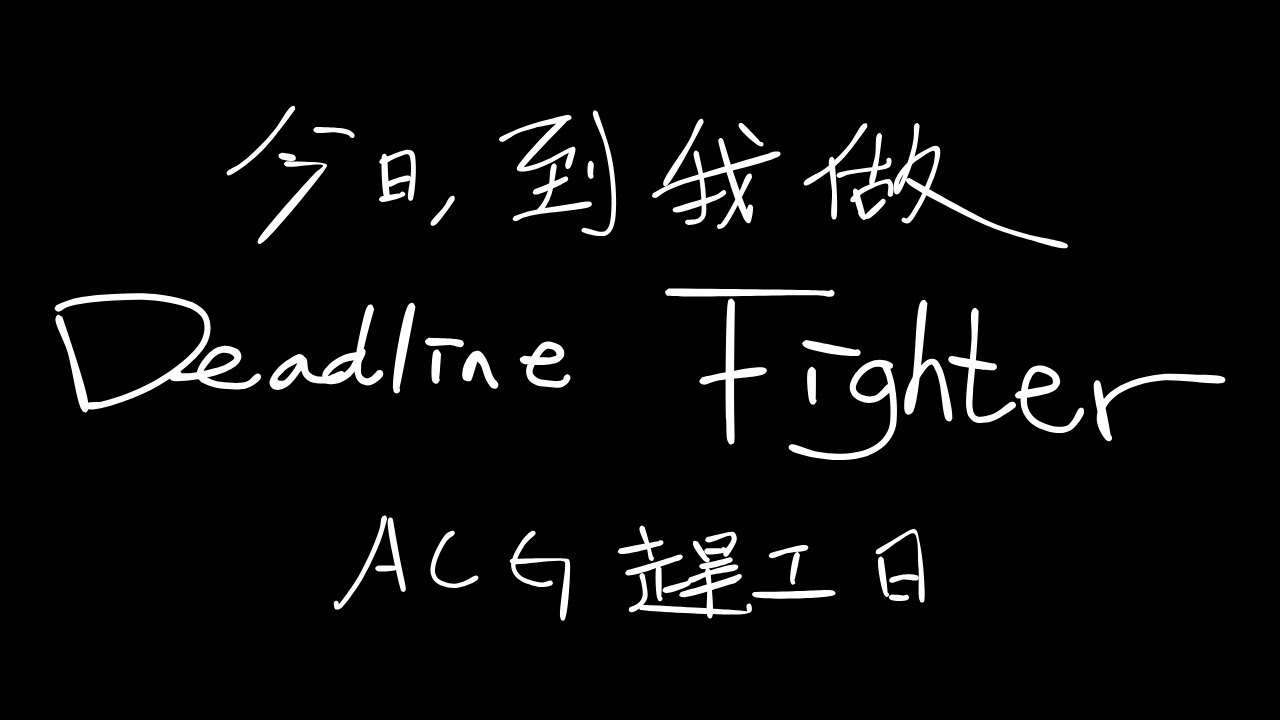 今日,到我做
Deadline Fighter
ACG趕工日